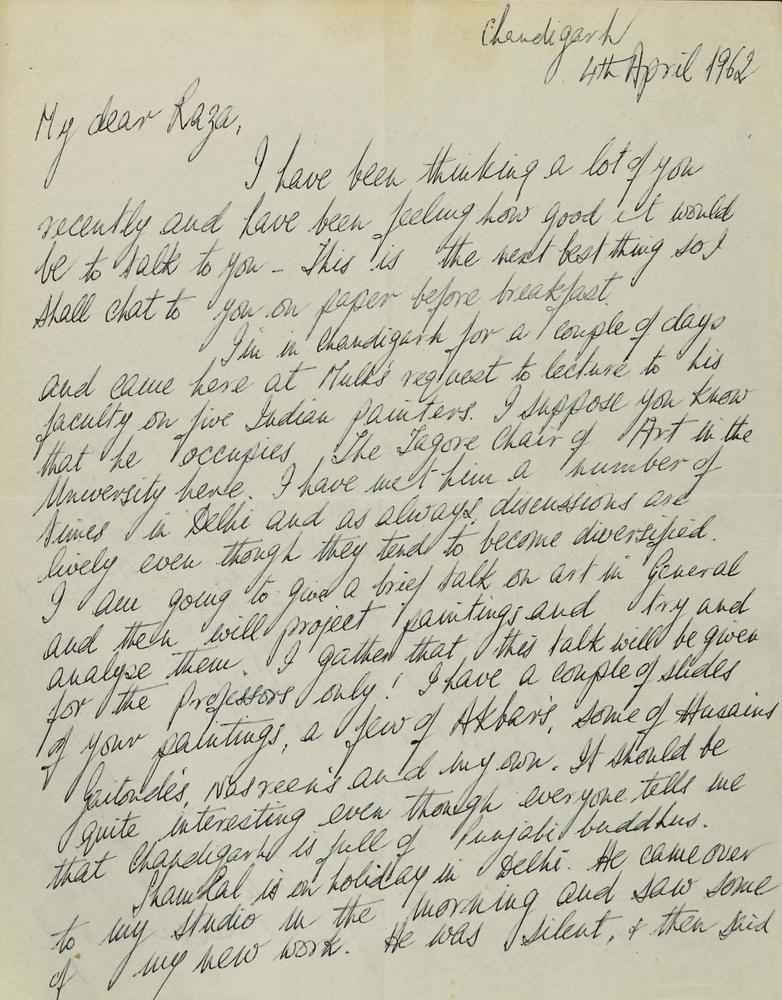 Chandigarh
4th April 1962
My dear Raza,
I have been thinking a lot of you
recently and have been feeling how good it would
be to talk to you - This is the next best thing so I
shall chat to you on paper before breakfast.
I'm in Chandigarh for a couple of days
and came here at Mulk's request to lecture to his
faculty on five Indian painters. I suppose you know
that he occupies The Tagore Chair of Art in the
University here. I have met him a number of
times in Delhi and as always discussions are
lively even though they tend to become diversified.
I am going to give a brief talk on art in General
and then will project paintings and try and
analyse them. I gather that this talk will be given
for the Professors only! I have a couple of slides
of your paintings, a few of Akbar's, some of Husains
Gaitonde's, Nasreen's and my own. It should be
quite interesting even though everyone tells me
that Chandigarh is full of Punjabi buddhus.
Sham Lal is on holiday in Delhi. He came over
to my studio in the morning and saw some
of my new work. He was silent, & then said